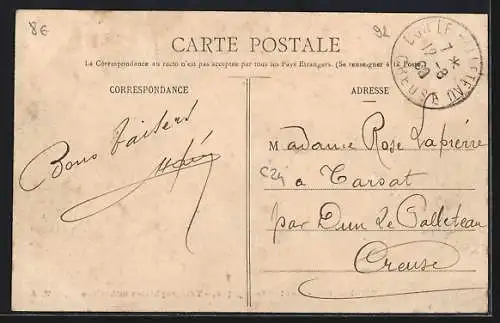 8€
92
CARTE POSTALE
La Correspondance au recto n'est pas acceptée par tous les Pays Étrangers. (Se renseigner à la Poste)
CORRESPONDANCE
ADRESSE
Bons baisers
Madame Rose Lapierre
à Tarsat
par Dun le Palleteau
Creuse